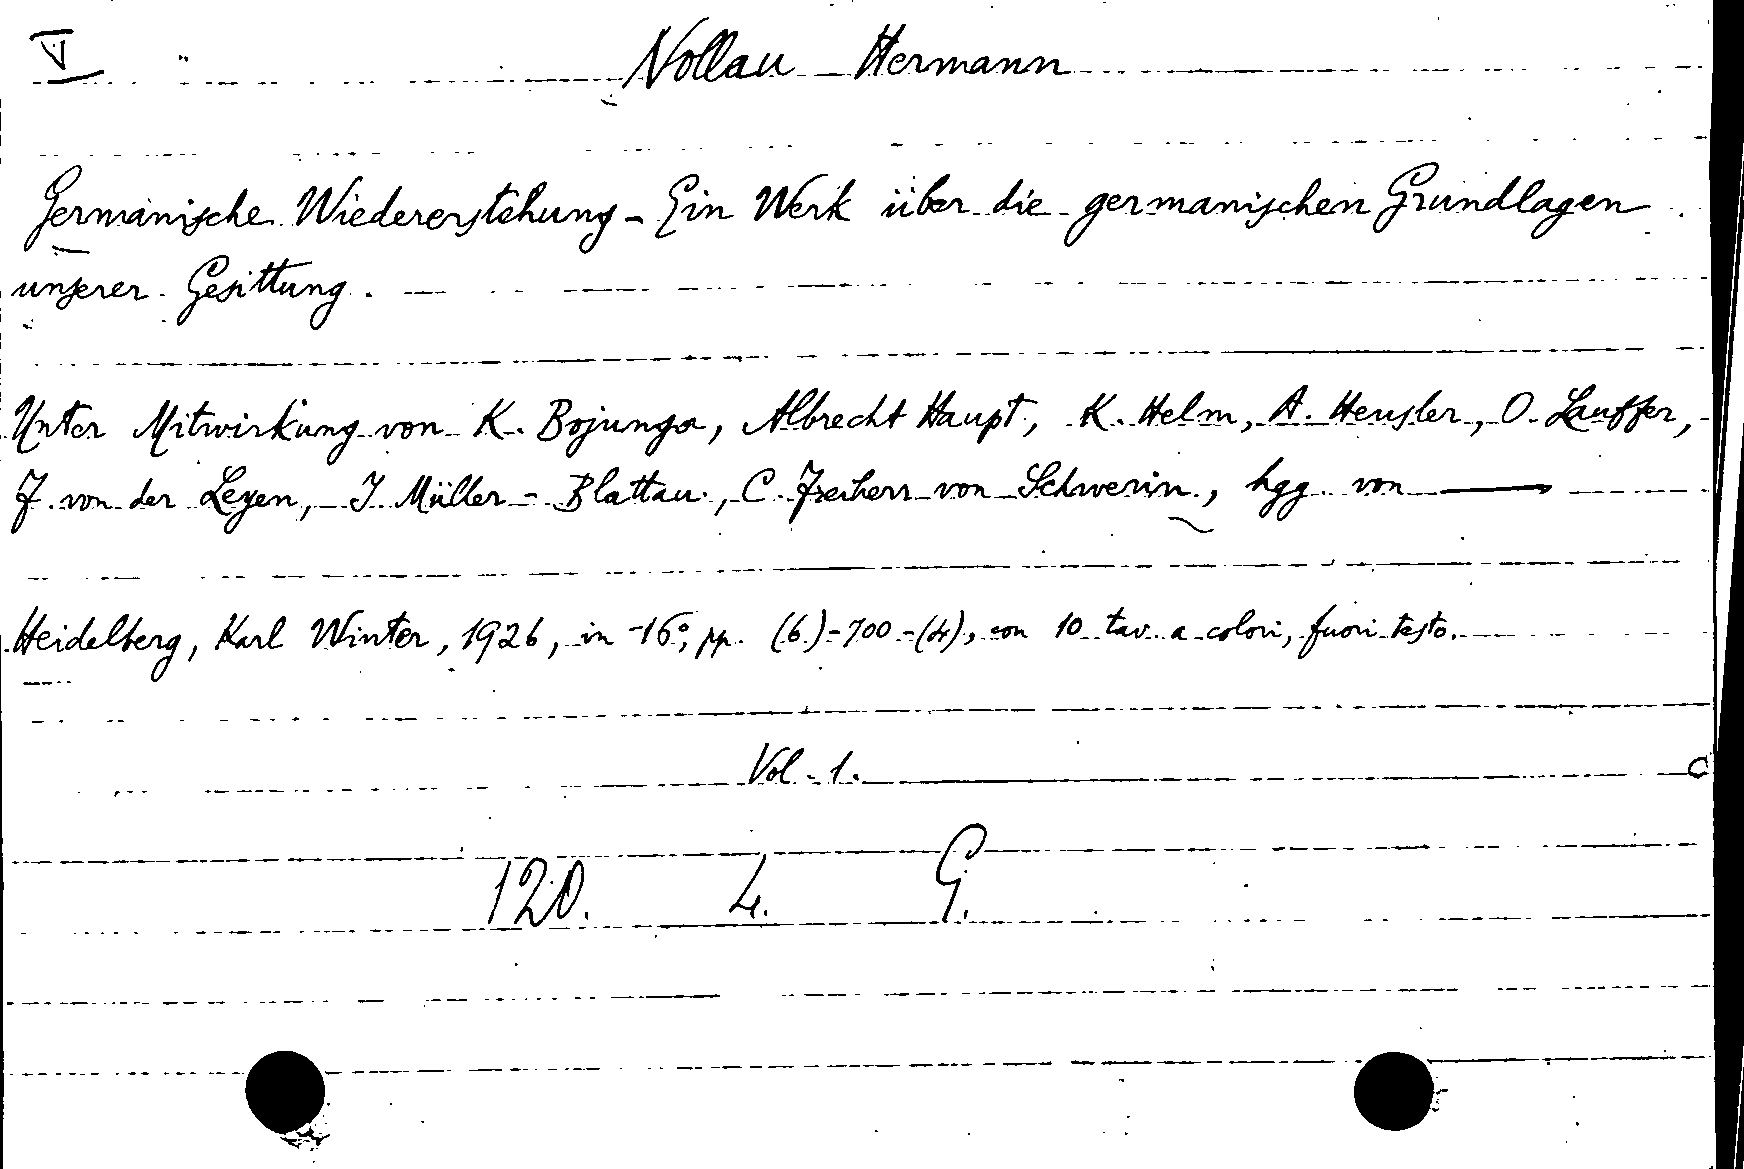 V
Nollau Hermann
Germanische Wiedererstehung - Ein Werk über die germanischen Grundlagen
unserer Gesittung.
Unter Mitwirkung von K. Bojunga, Albrecht Haupt, K. Helm, A. Heusler, O. Lauffer,
F. von der Leyen, J. Müller - Blattau, C. Freiherr von Schwerin, hgg. von ———
Heidelberg, Karl Winter, 1926, in -16°, pp. (6)-700-(4), con 10 tav. a colori, fuori testo.
Vol. 1.
120. 4. G.